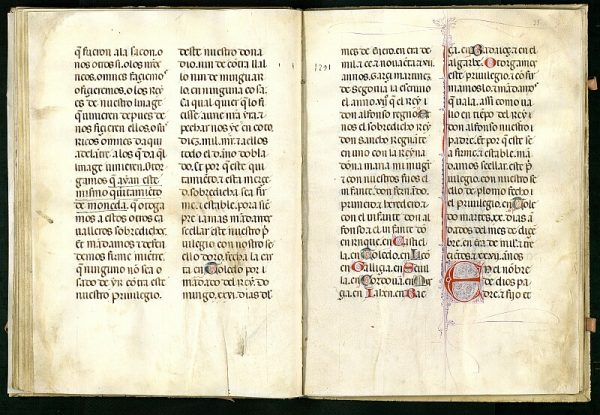 q̃ fueron ala sacon. o
nos otros si. o los mos
neos. o nnes fagiemos
o figeremos. o los rey
es de nuestro linage
que uinieren depues de
nos figieren ellos. o sus
ricos omnes da qui
adelant. a los q̃ da qui
linage uinieren. Otor
gamos que ayan este
mismo quitamiento
de moneda. que otorga
mos a estos otros ca
ualleros sobredichos.
Et mandamos & defen
demos firme mientre.
que ninguno no sea o
sado de yr contra este
nuestro priuilegio.
deste nuestro dona
dio. nin de contra lla
llo nin de minguar
lo. en ninguna cosa.
Ca qual quier q̃ lo fi
ziesse aurie nuestra yra. &
pecharnos ye en coto.
diez mil mr. & a ellos
todo el danno dobla
do. Et por q̃ este qui
tamiento & esta merced
sobredicha sea fir
me. & estable. por siem
pre iamas mandamos
seellar este nuestro pri
uilegio con nuestro se
ello doro. fecha la carta
en Toledo por
mandado del rey. do
mingo. xxvi. dias del
1291
mes de enero. en era de
mil. & cc. & nouaeta & vii.
annos. Garci martinez
de segouia la escriuio
el anno. vijº. que el Rey
don alfonso regno. E
nos el sobredicho Rey
don sancho regnante
en uno con la Reyna
donna maria mi muger
& con nuestros fijos el
infante. don fernando.
primero & heredero. &
con el infante don al
fonso. & con el infante don
enrique. en Castiella.
en Toledo. en Leon
en Gallizia. en Seuilla
en Cordoua. en Mur
çia. en Iahen. en Bae
ça. en Badaioz. & en el
algarbe. Otorgamos
este priuilegio. & confir
mamoslo. & mandamos
que uala. assi como ua
lio en tienpo del Rey
don alfonso nuestro
padre. Et por que este se
a firme. & estable. man
damos seellar este pri
uilegio. con nuestro se
ello de plomo. fecho
el priuilegio. en Toledo
martes. xx. dias an
dados del mes de dizie
bre. en era de mil & tre
cientos & xxvii. annos.
En el nobre
de dios pa
dre. & fijo. et